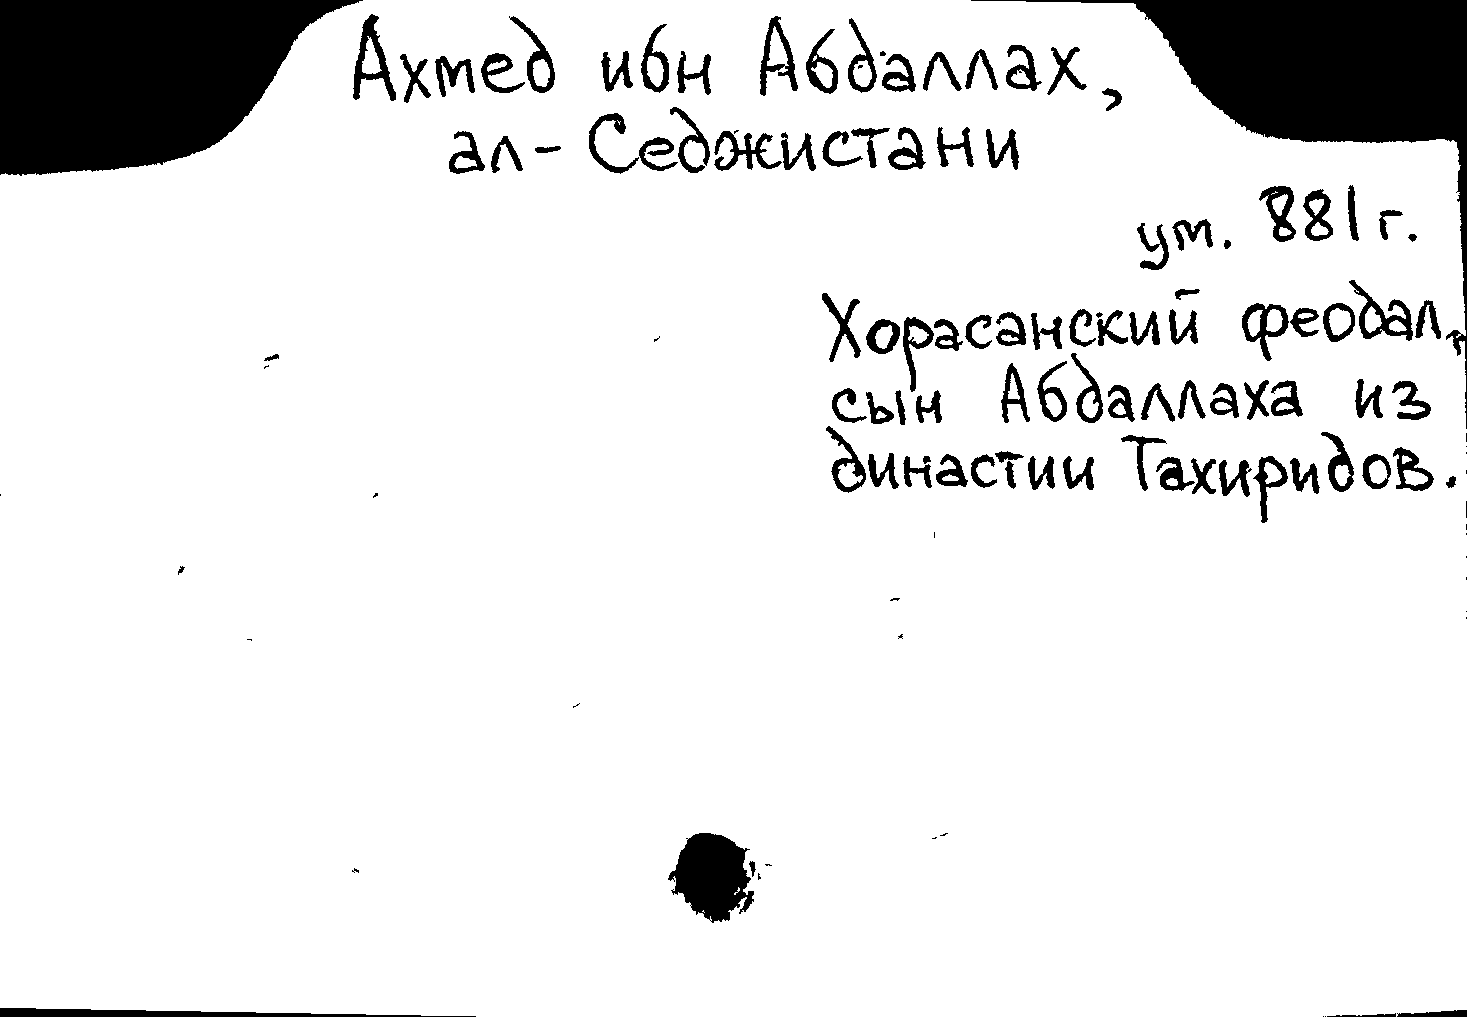 Ахмед ибн Абдаллах,
ал-Седжистани
ум. 881 г.
Хорасанский феодал,
сын Абдаллаха из
династии Тахиридов.